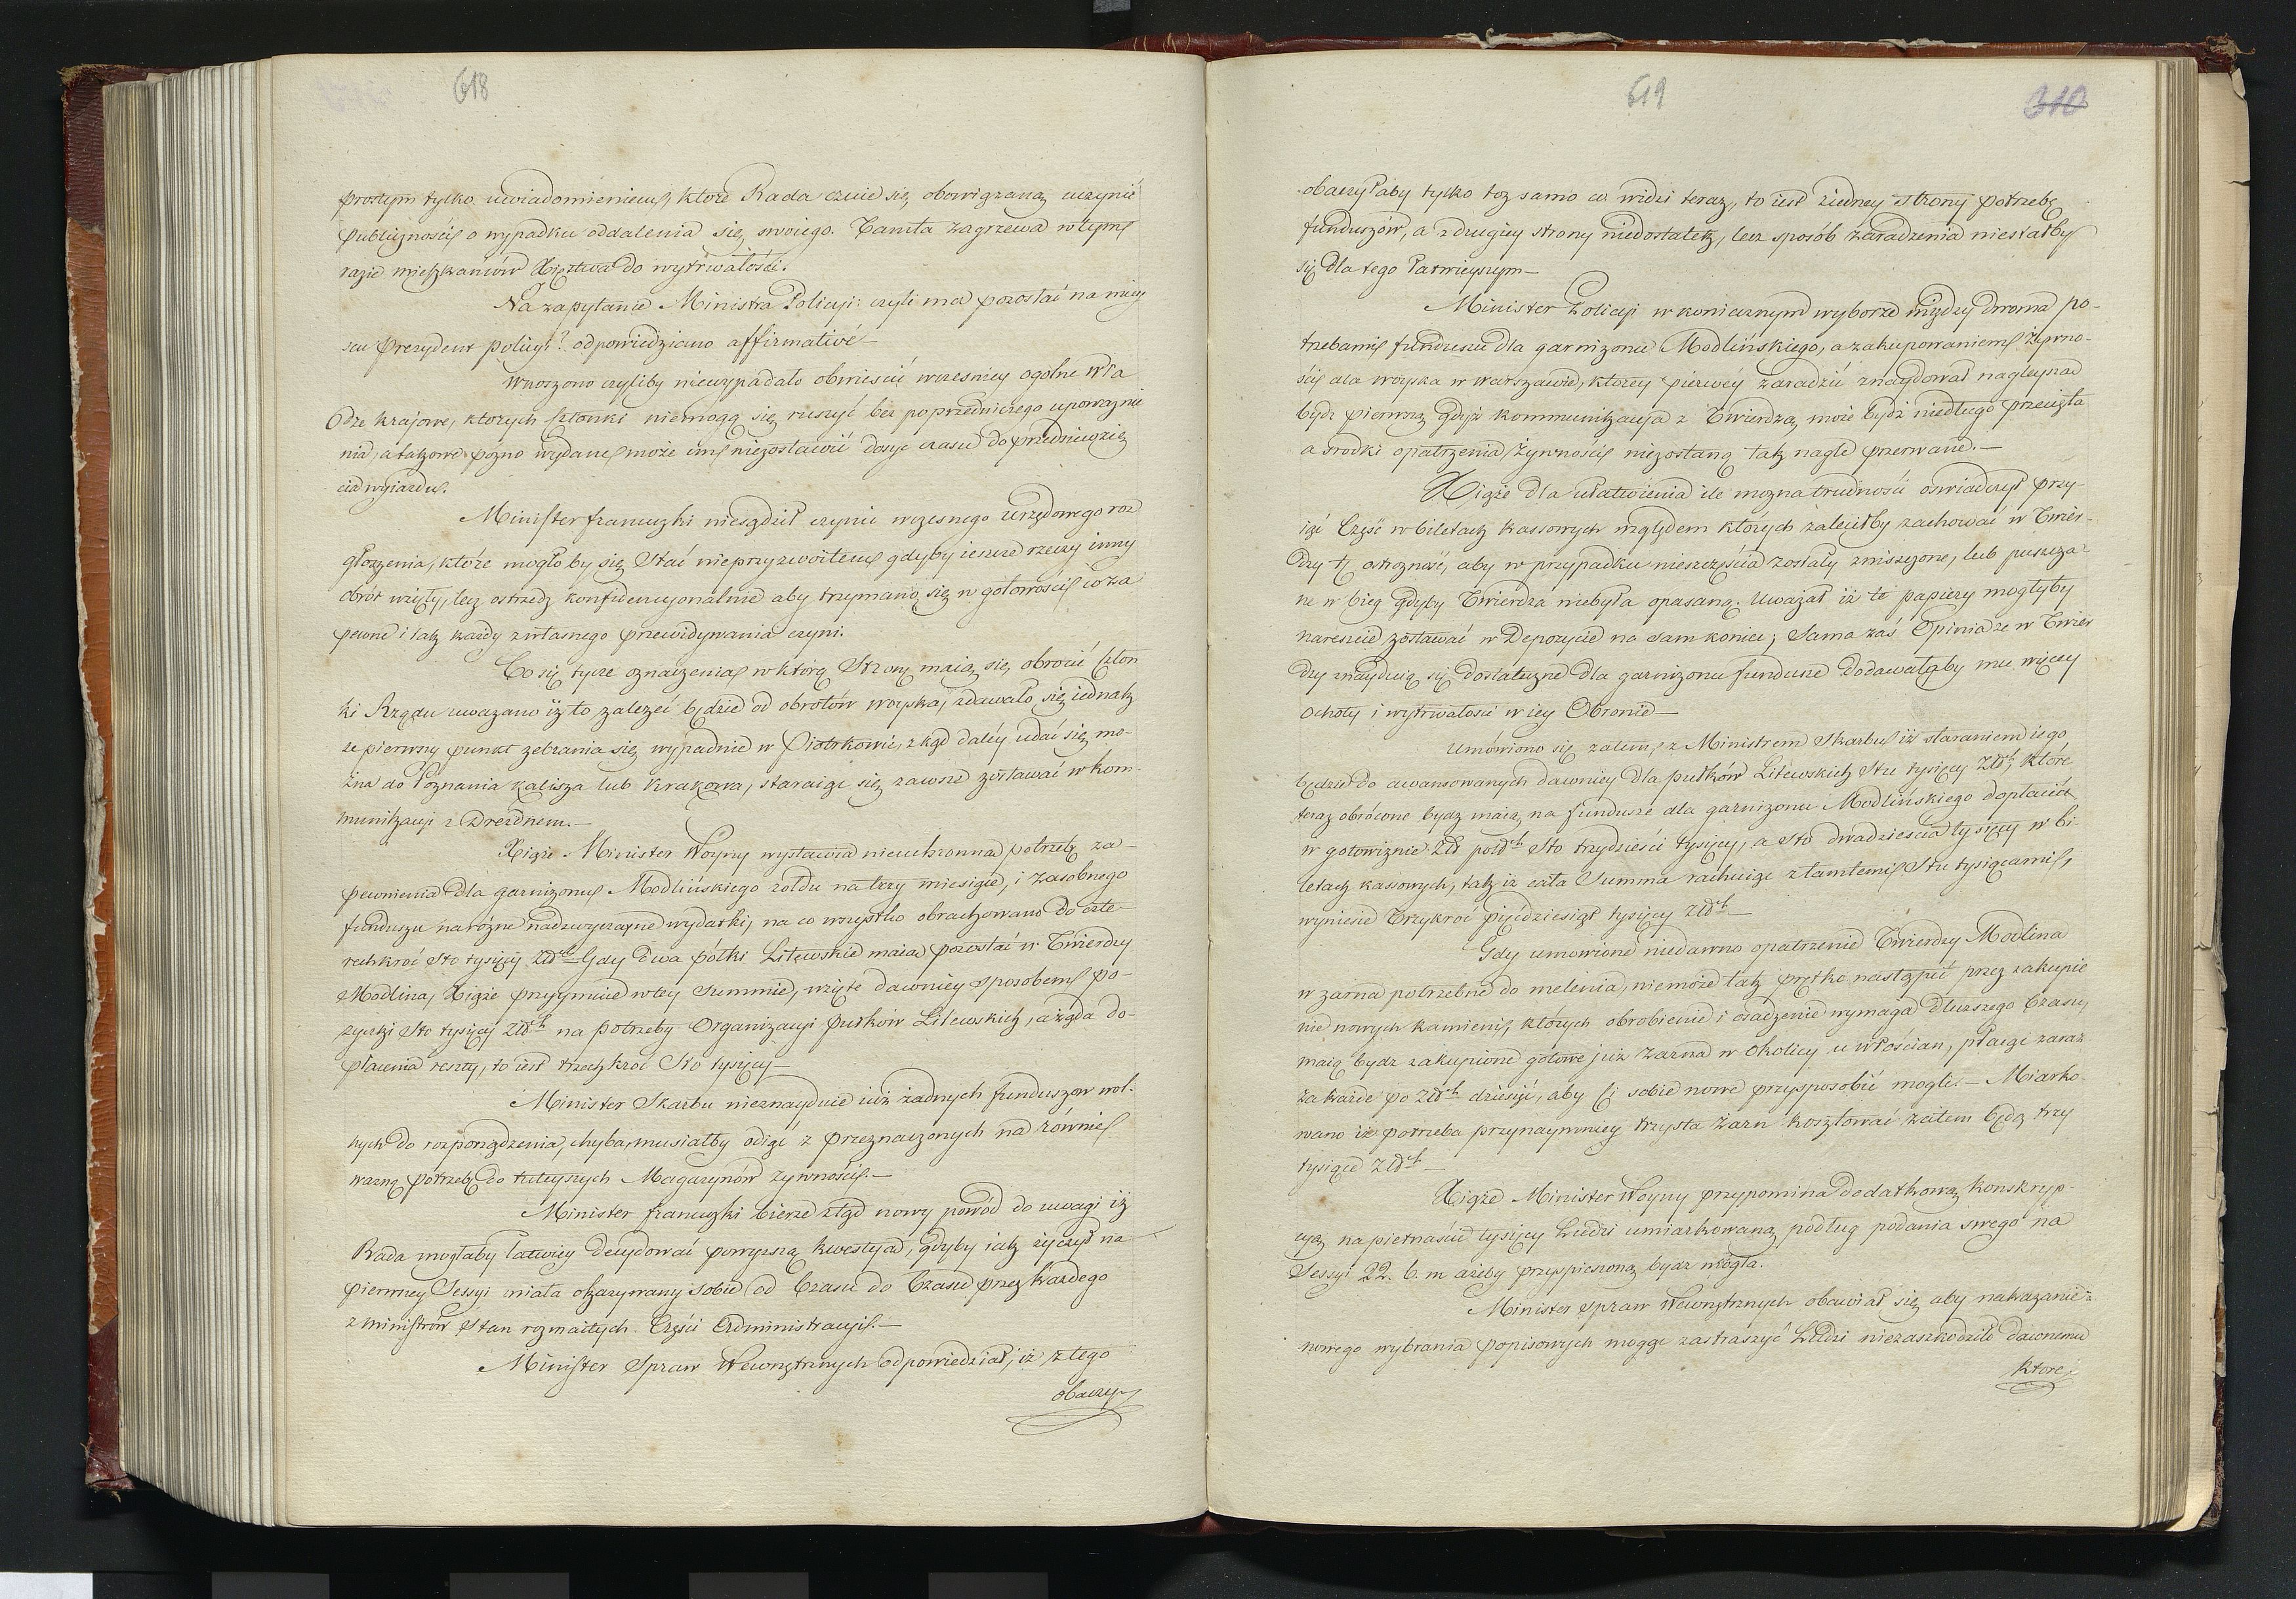 618
prostym tylko uwiadomieniem, ktore Rada czuie się obowiązaną uczynić
publiczności o wypadku oddalenia się swoiego. Tamta zagrzewa w tym
razie mieszkańców Xięztwa do wytrwałości.
Na zapytanie Ministra Policyi: czyli ma pozostać na miey
scu Prezydent policyi? odpowiedziano affirmativé —
Wnoszono czyliby niewypadało obwieścić wcześniey ogolne Wła
dze krajowe, ktorych członki niemogą się ruszyć bez poprzedniczego upoważnie
nia, a takowe pozno wydane może im niezostawić dosyć czasu do przedsięwzię
cia wyiazdu.
Minister francuzki niesądził czynić wczesnego urzędowego roz
głoszenia, któré mogłoby się stać nieprzyzwoitem gdyby ieszcze rzeczy inny
obrót wzięły, lecz ostrzedz konfidencyonalnie aby trzymano się w gotowości co za
pewne i tak każdy z własnego przewidywania czyni.
Co się tycze oznaczenia w którą stronę maią się obrocić Człon
ki Rządu uwazano iż to zależeć będzie od obrotów woyska, zdawało się iednak
że pierwszy punkt zebrania się wypadnie w Piotrkowie, zkąd daléy udać się mo-
żna do Poznania Kalisza lub Krakowa, staraiąc się zawsze zostawać w kom-
munikacyi z Dreznem. —
Xiąże Minister Woyny wystawia nieuchronną potrzebę za-
pewnienia dla garnizonu Modlińskiego żołdu na trzy miesiące, i zasobnego
funduszu na różne nadzwyczayne wydatki, na co wszystko obrachowano do czte-
rechkroć sto tysięcy Złłch Gdy dwa półki Litewskie maią pozostać w Twierdzy
Modlina, Xiąże przyymuie w tey summie, wzięte dawniey sposobem po-
życzki sto tysięcy Złłch na potrzeby Organizacyi pułków Litewskich, a żąda do-
płacenia reszty, to iest trzechkroć sto tysięcy —
Minister Skarbu nieznayduie iuż żadnych funduszow wol-
nych do rozporządzenia, chyba, musiałby odiąć z przeznaczonych na równie
ważną potrzebę do tuteyszych Magazynów żywności. —
Minister francuzki bierze ztąd nowy powód do uwagi iż
Rada mogłaby łatwiey decydować powyższą kwestyą, gdyby iak życzył na
pierwszey Sessyi miała okazywany sobie od Czasu do Czasu przez każdego
z Ministrów stan rozmaitych Części Administracyi. —
Minister Spraw Wewnętrznych odpowiedział, iż z tego
obaczył
619
310
obaczyłaby tylko toż samo co widzi teraz, to iest z iedney strony potrzebę
funduszów, a z drugiey strony niedostatek, lecz sposób zaradzenia niestałby
się dla tego łatwieyszym —
Minister Policyi w koniecznym wyborze między dwoma po-
trzebami funduszu dla garnizonu Modlińskiego, a zakupowaniem żywno-
ści dla woyska w Warszawie, ktorey pierwéy zaradzić znaydował nagleyszą
bydź pierwszą gdyż kommunikacya z Twierdzą może bydź niedługo przecięta
a srodki opatrzenia żywności niezostaną tak nagle przerwane. —
Xiąże dla ułatwienia ile można trudności oświadczył przy-
iąć Część w biletach kassowych względem których zaleciłby zachować w Twier-
dzy tę ostrożność, aby w przypadku nieszczęścia zostały zniszczone, lub puszcza-
ne w bieg gdyby Twierdza niebyła opasaną. Uważał iż te papiery mogłyby
nareszcie zostawać w Depozycie na sam koniec; Sama zaś Opinia że w Twier
dzy znayduią się dostateczne dla garnizonu fundusze dodawałaby mu więcey
ochoty i wytrwałości w iey Obronie —
Umówiono się zatem z Ministrem Skarbu iż staraniem iego
będzie do awansowanych dawniey dla pułków Litewskich stu tysięcy Złłch, które
teraz obrócone bydz maią na fundusze dla garnizonu Modlińskiego dopłacić
w gotowiznie Zł polch sto trzydzieści tysięcy, a sto dwadzieścia tysięcy w bi-
letach kassowych, tak iż cała Summa rachuiąc z tamtemi stu tysiącami,
wyniesie Trzykroć pięćdziesiąt tysięcy Złłch —
Gdy umowione niedawno opatrzenie Twierdzy Modlina
w żarna potrzebne do mélenia, niemoże tak prętko nastąpić przez zakupie
nie nowych kamieni, których obrobienie i osadzenie wymaga dłuższego Czasu,
maią bydz zakupione gotowe już żarna w okolicy u włościan, płacąc zaraz
za każde po Złłch dziesięć, aby ci sobie nowe przysposobić mogli. — Miarko-
wano iż potrzeba przynaymniey trzysta żarn kosztować zatem będą trzy
tysiące Złłch —
Xiąże Minister Woyny przypomina dodatkową Konskryp-
cyą na piętnaście tysięcy Ludzi umiarkowaną podług podania swego na
Sessyi 22. b. m ażeby przyspieszoną bydz mogła.
Minister spraw Wewnętrznych obawiał się aby nakazanie
nowego wybrania popisowych mogąc zastraszyć Ludzi niezaszkodziło dawnemu
które